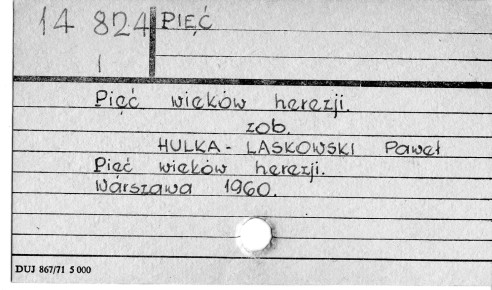 14 824 PIĘĆ
I
Pięć wieków herezji.
zob.
HULKA-LASKOWSKI Paweł
Pięć wieków herezji.
Warszawa 1960.
DUJ 867/71 5 000